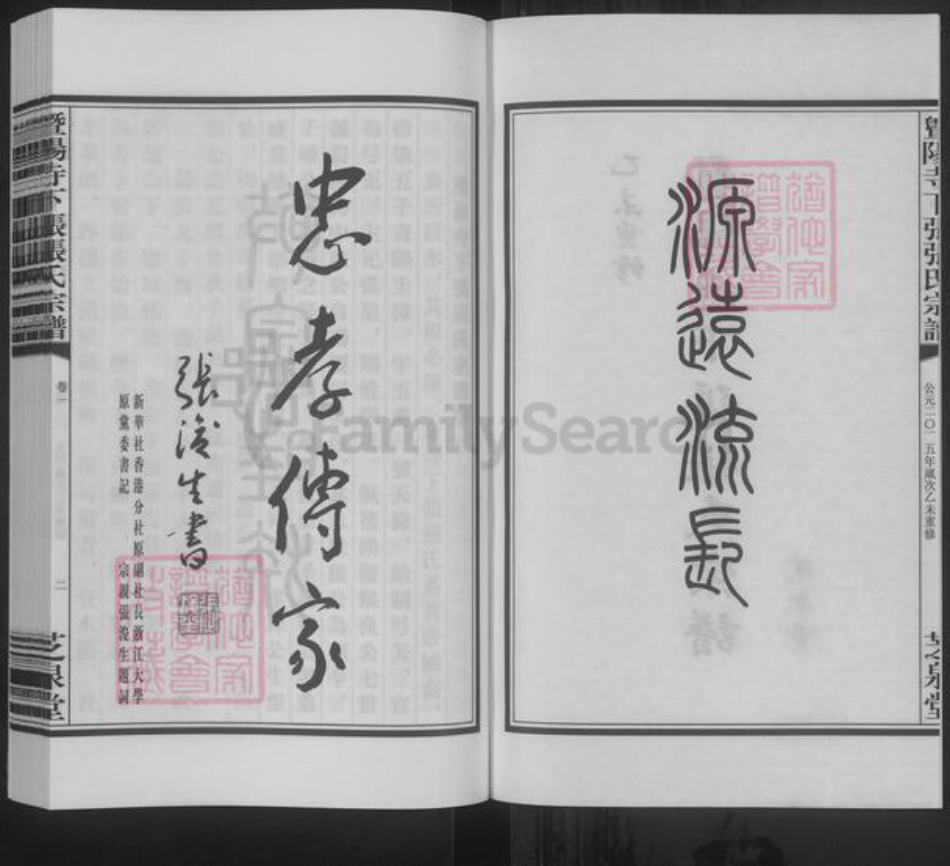 暨陽寺下張張氏宗譜
公元二〇一五年歲次乙未重修
芝泉堂
源遠流長
忠孝傳家
張浚生書
新華社香港分社原副社長浙江大學
原黨委書記 宗親張浚生題詞
暨陽寺下張張氏宗譜
卷一
二
芝泉堂
FamilySearch